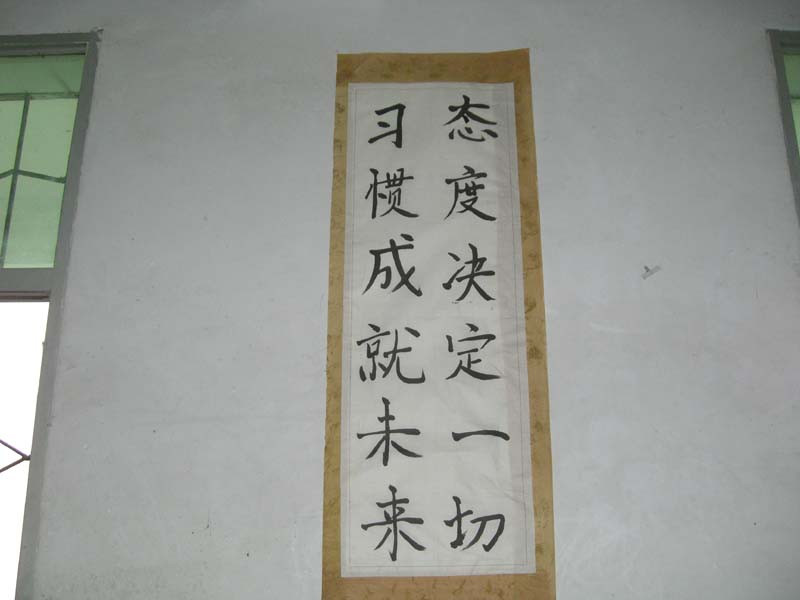 态度决定一切
习惯成就未来